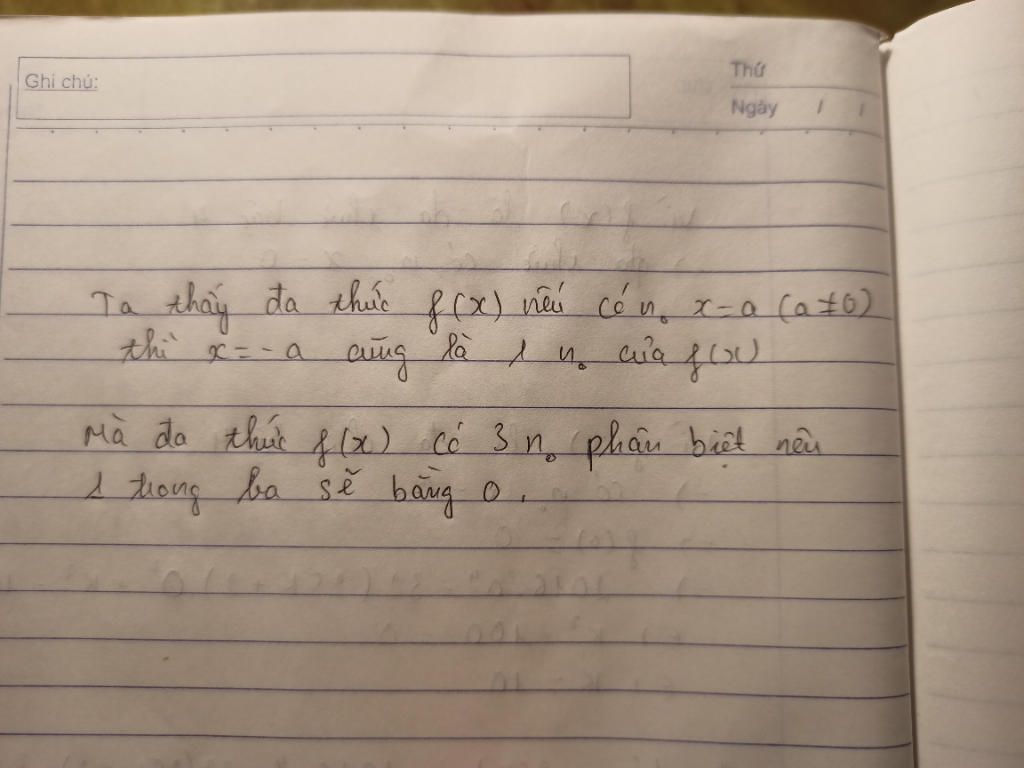 Ghi chú:
Thứ
Ngày / /
Ta thấy đa thức f(x) nếu có n₀ x=a (a≠0)
thì x=-a cũng là 1 n₀ của f(x)
Mà đa thức f(x) có 3 n₀ phân biệt nên
1 trong ba sẽ bằng 0.